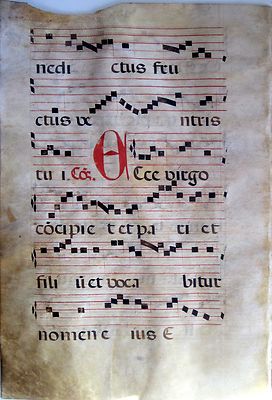 nedi ctus fru
ctus ve ntris
tu i. Cõ. Ecce virgo
cõcipie t et pa ri et
fili ũ et voca bitur
nomen e ius E